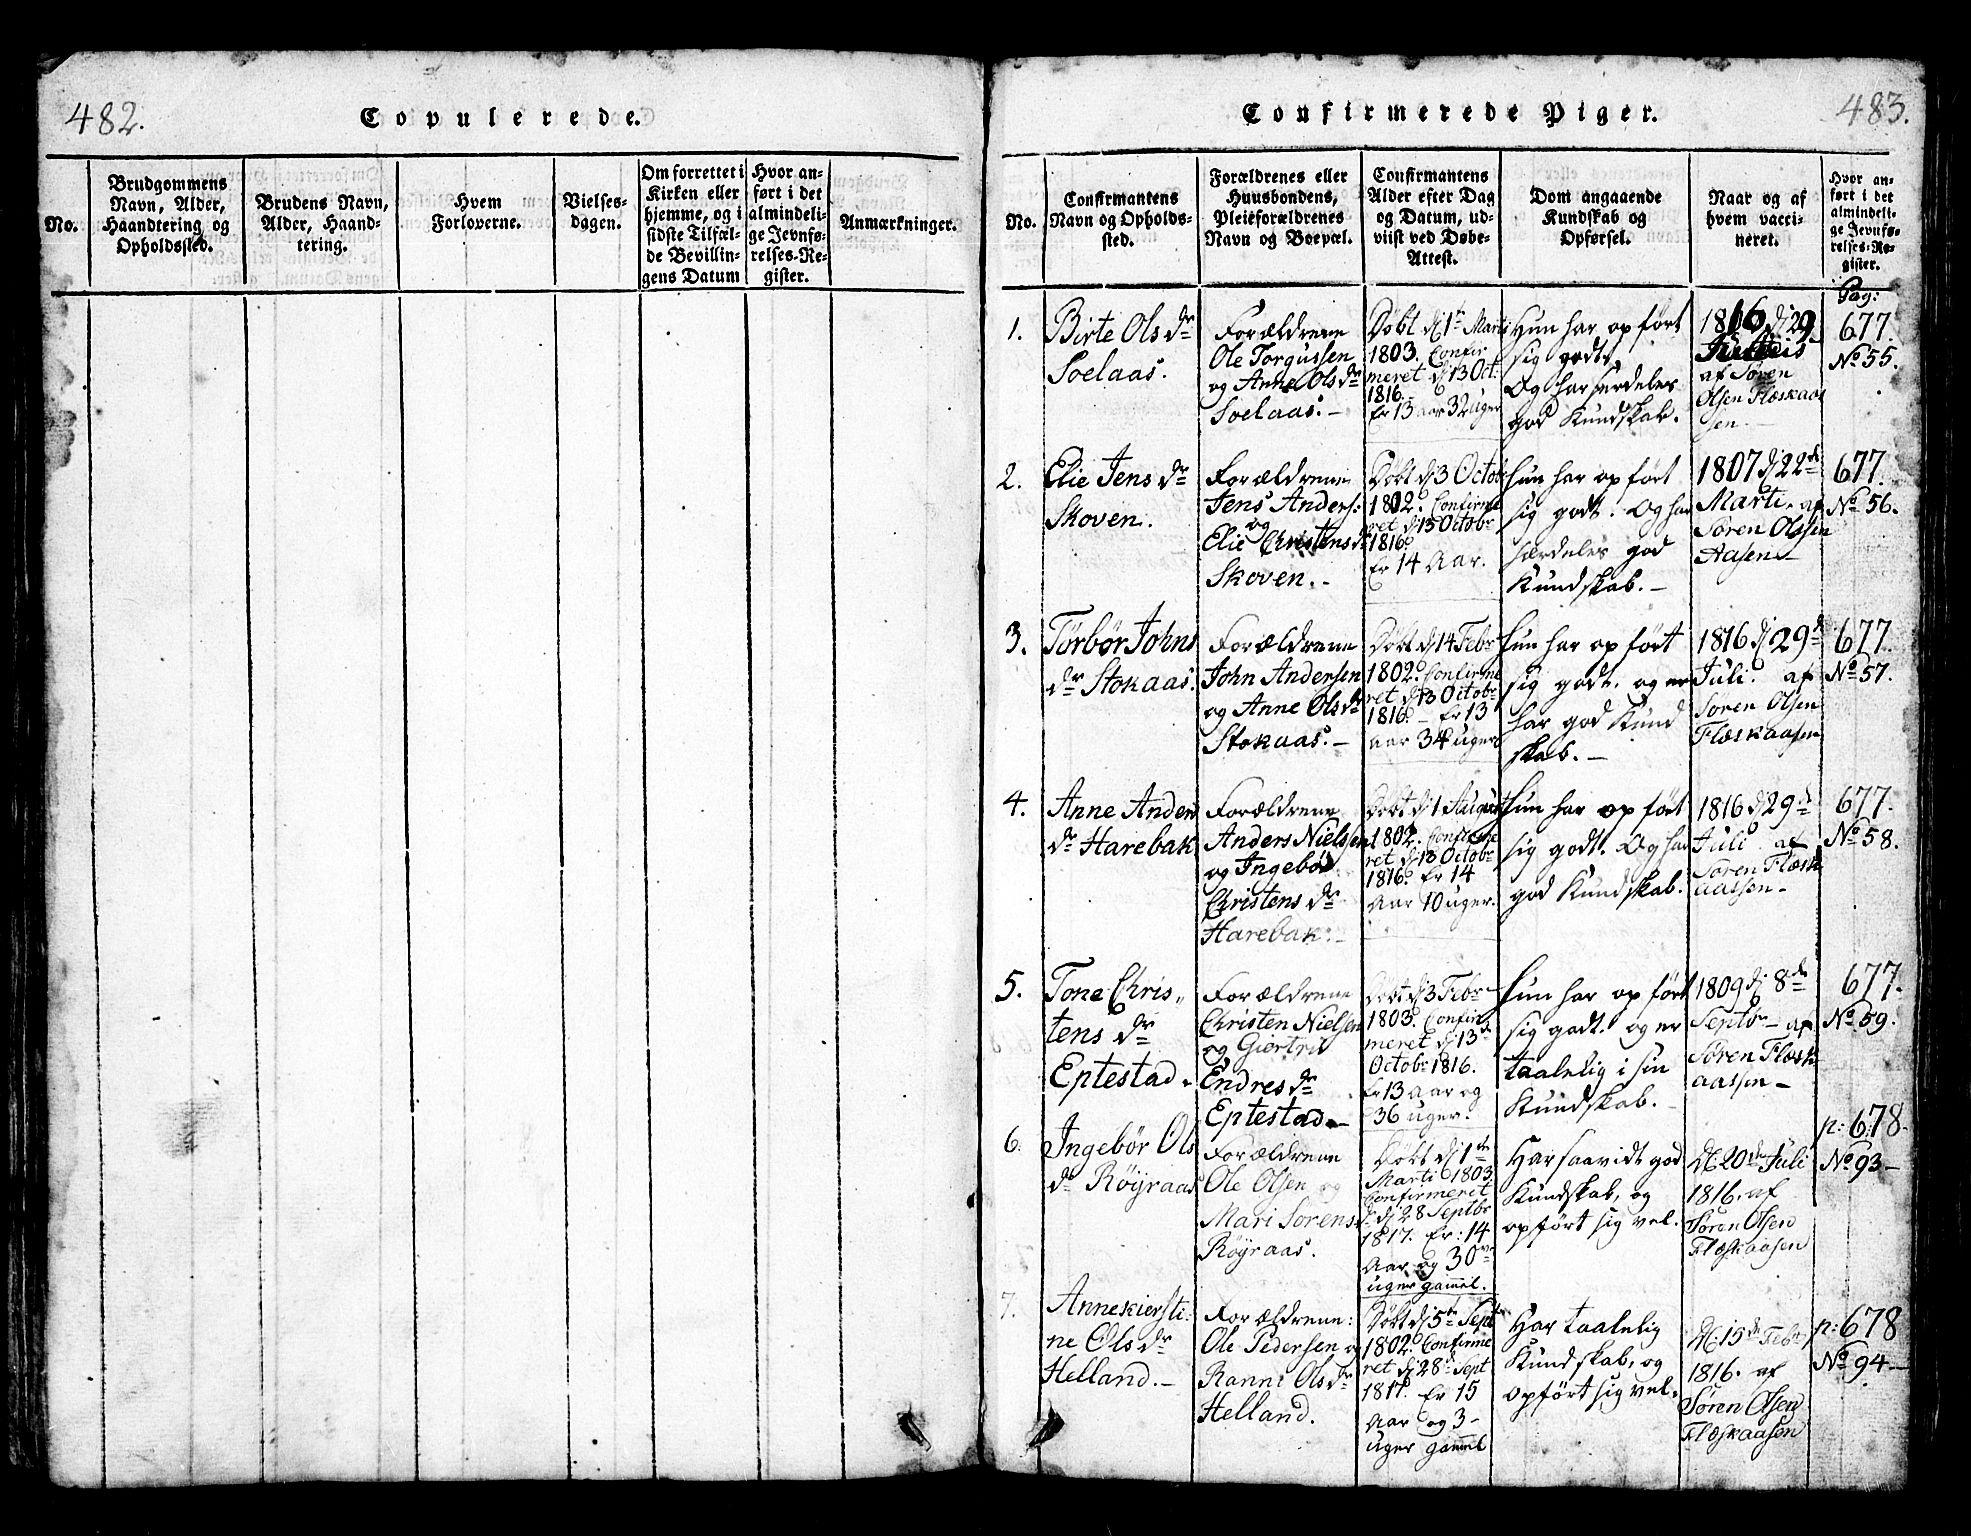 482.
Copulerede.
No.
Brudgommens
Navn, Alder,
Haandtering og
Opholdssted.
Brudens Navn,
Alder, Haand-
tering.
Hvem
Forloverne.
Vielses-
dagen.
Om forrettet i
Kirken eller
hjemme, og i
sidste Tilfæl-
de Bevillin-
gens Datum
Hvor an-
ført i det
almindeli-
ge Jevnfø-
relses-Re-
gister.
Anmærkninger.
Confirmerede Piger.
483.
No.
Confirmantens
Navn og Opholds-
sted.
Forældrenes eller
Huusbondens,
Pleieforældrenes
Navn og Boepæl.
Confirmantens
Alder efter Dag
og Datum, ud-
viist ved Døbe-
Attest.
Dom angaaende
Kundskab og
Opførsel.
Naar og af
hvem vacci-
neret.
Hvor an-
ført i det
almindeli-
ge Jevnfø-
relses-Re-
gister.
Pag:
1.
Birte Ols dr
Soelaas.
Forældrene
Ole Torgussen
og Anne Ols dr
Soelaas. –
Døbt dj 1te Marti
1803. Confir
meret dj 13 Oct.
1816. –
Er 13 aar 32 uger
Hun har opført
sig godt,
Og har særdeles
god Kundskab.
1816 dj 29
af Søren
Olsen Flæskaas
sen
677.
No 55.
2.
Elie Jens dr
Skoven.
Forældrene
Jens Anders:
og
Elie Christens dr
Skoven. –
Døbt dj 3 Octob
1802. Confirme
ret dj 13 Octobr
1816.
Er 14 Aar.
Hun har opført
sig godt. Og har
særdeles god
Kundskab. –
1807 dj 22de
Marti. af
Søren Olssen
Aasen –
677.
No 56.
3.
Tørbør Johns
dr Stokaas.
Forældrene
John Andersen
og Anne Ols dr
Stokaas. –
Døbt dj 14 Febr
1802. Confirme
ret dj 13 Octobr
1816. – Er 13
aar 34 uger
Hun har opført
sig godt. og er
har god Kund
skab. –
1816 dj 29d
Juli. af
Søren Olsen
Flæskaasen
677.
No 57.
4.
Anne Anders
dr Harebak
Forældrene
Anders Nielssen
og Ingebør
Christens dr
Harebak. –
Døbt dj 1 August
1802. Confirme
ret dj 13 Octobr
1816. Er 14
Aar 10 uger.
Hun har opført
sig godt. Og har
god Kundskab.
1816 dj 29d
Juli af
Søren Flæsk
aassen –
677.
No 58.
5.
Tone Chris„
tens dr
Eptestad.
Forældrene
Christen Nielsen
og Giertrid
Endres dr
Eptestad. –
Døbt dj 3 Febr
1803. Confir
meret dj 13d
Octobr 1816.
Er 13 aar og
36 uger.
Hun har opført
sig godt. og er
taalelig i sin
Kundskab. –
1809 dj 8de
Septbr – af
Søren Flæsk
aassen –
677.
No 59.
6.
Ingebør Ols
dr Røyraas
Forældrene
Ole Olsen og
Mari Sørens
Røyraas.
Døbt dj 1te
Marti 1803
Confirmeret
dj 28 Septbr
1817. Er: 14
Aar og 30
uger gammel.
Har saavidt god
Kundskab, og
opført sig vel.
D: 20de Juli
1816. af
Søren Olsen
Flæskaasen
p: 678.
No 93 –
7.
Annekiersti
ne Ols dr
Helland. –
Forældrene:
Ole Pedersen og
Ranni Ols dr
Helland.
Døbt dj 5te Sept
1802. Confirme
ret dj 28d Sept
1817. Er 15
Aar og 3 –
uger gammel
Har taalelig
Kundskab, og
opført sig vel.
D: 15de Febr
1816. af
Søren Olsen
Flæskaasen
p: 678
No 94 –